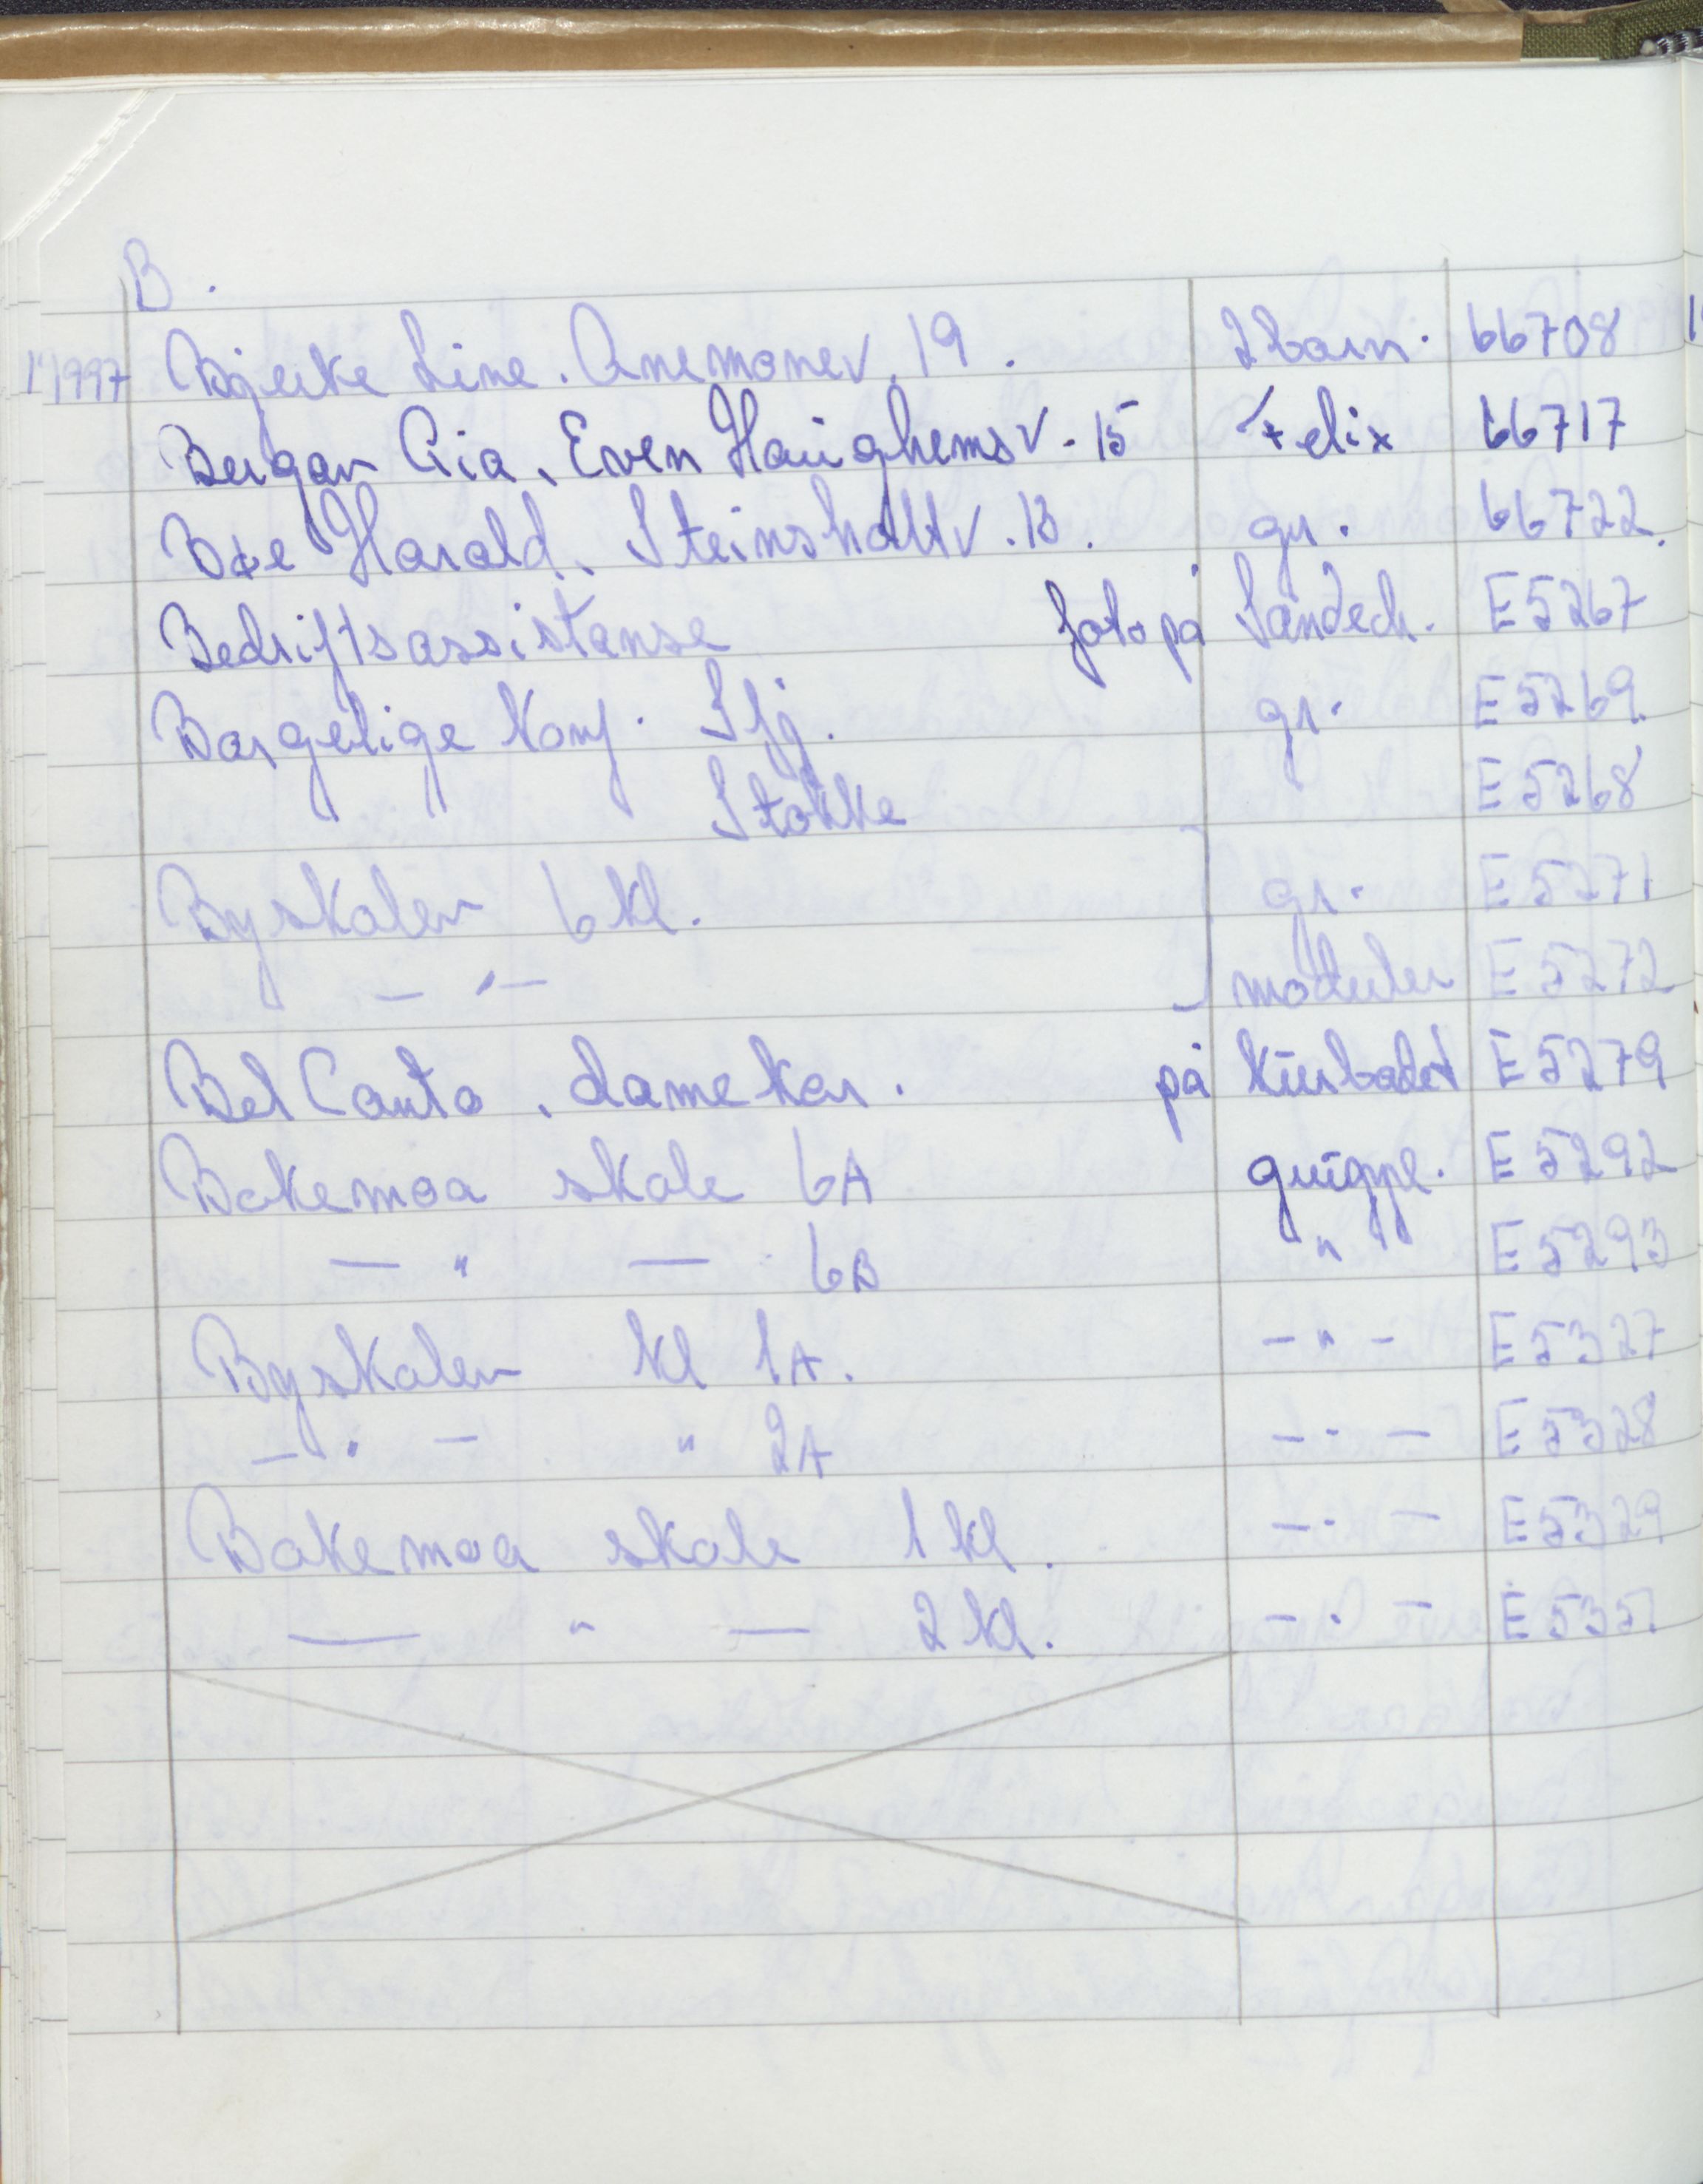 B.
1997 Bjerke Line. Anemonev. 19. 2 barn. 66708
Bergan Ria. Even Haughemsv. 15 Felix 66717
Bøe Harald. Steinsholtv. 13. gr. 66722.
Bedriftsassistanse foto på Sandech. E 5267
Borgelige Konf. Sfj. gr. E 5269.
Stokke E 5268
Byskolen 6 kl. gr. E 5271
— " — moduler E 5272
Bel Canto. damekor. på Kurbadet E 5279
Bokemoa skole 6A gruppe. E 5292
— " — 6B " E 5293
Byskolen kl 1A. - " - E 5327
- " - " 2A - " - E 5328
Bokemoa skole 1 kl. - " - E 5329
— " — 2 kl. - " - E 5351